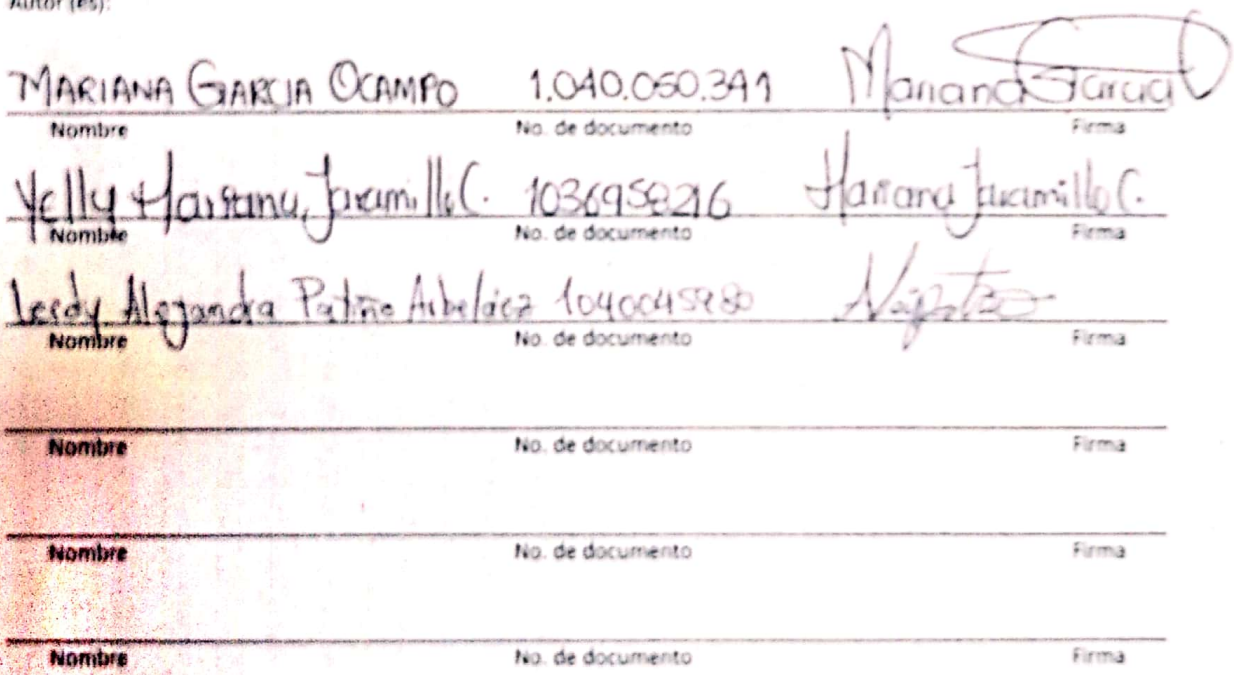 Autor (es):
MARIANA GARCIA OCAMPO 1.040.050.341 Mariana Garcia
Nombre No. de documento Firma
Yelly Mariana Jaramillo C. 1036958216 Mariana Jaramillo C.
Nombre No. de documento Firma
Leidy Alejandra Patiño Arbeláez 1040045980
Nombre No. de documento Firma
Nombre No. de documento Firma
Nombre No. de documento Firma
Nombre No. de documento Firma